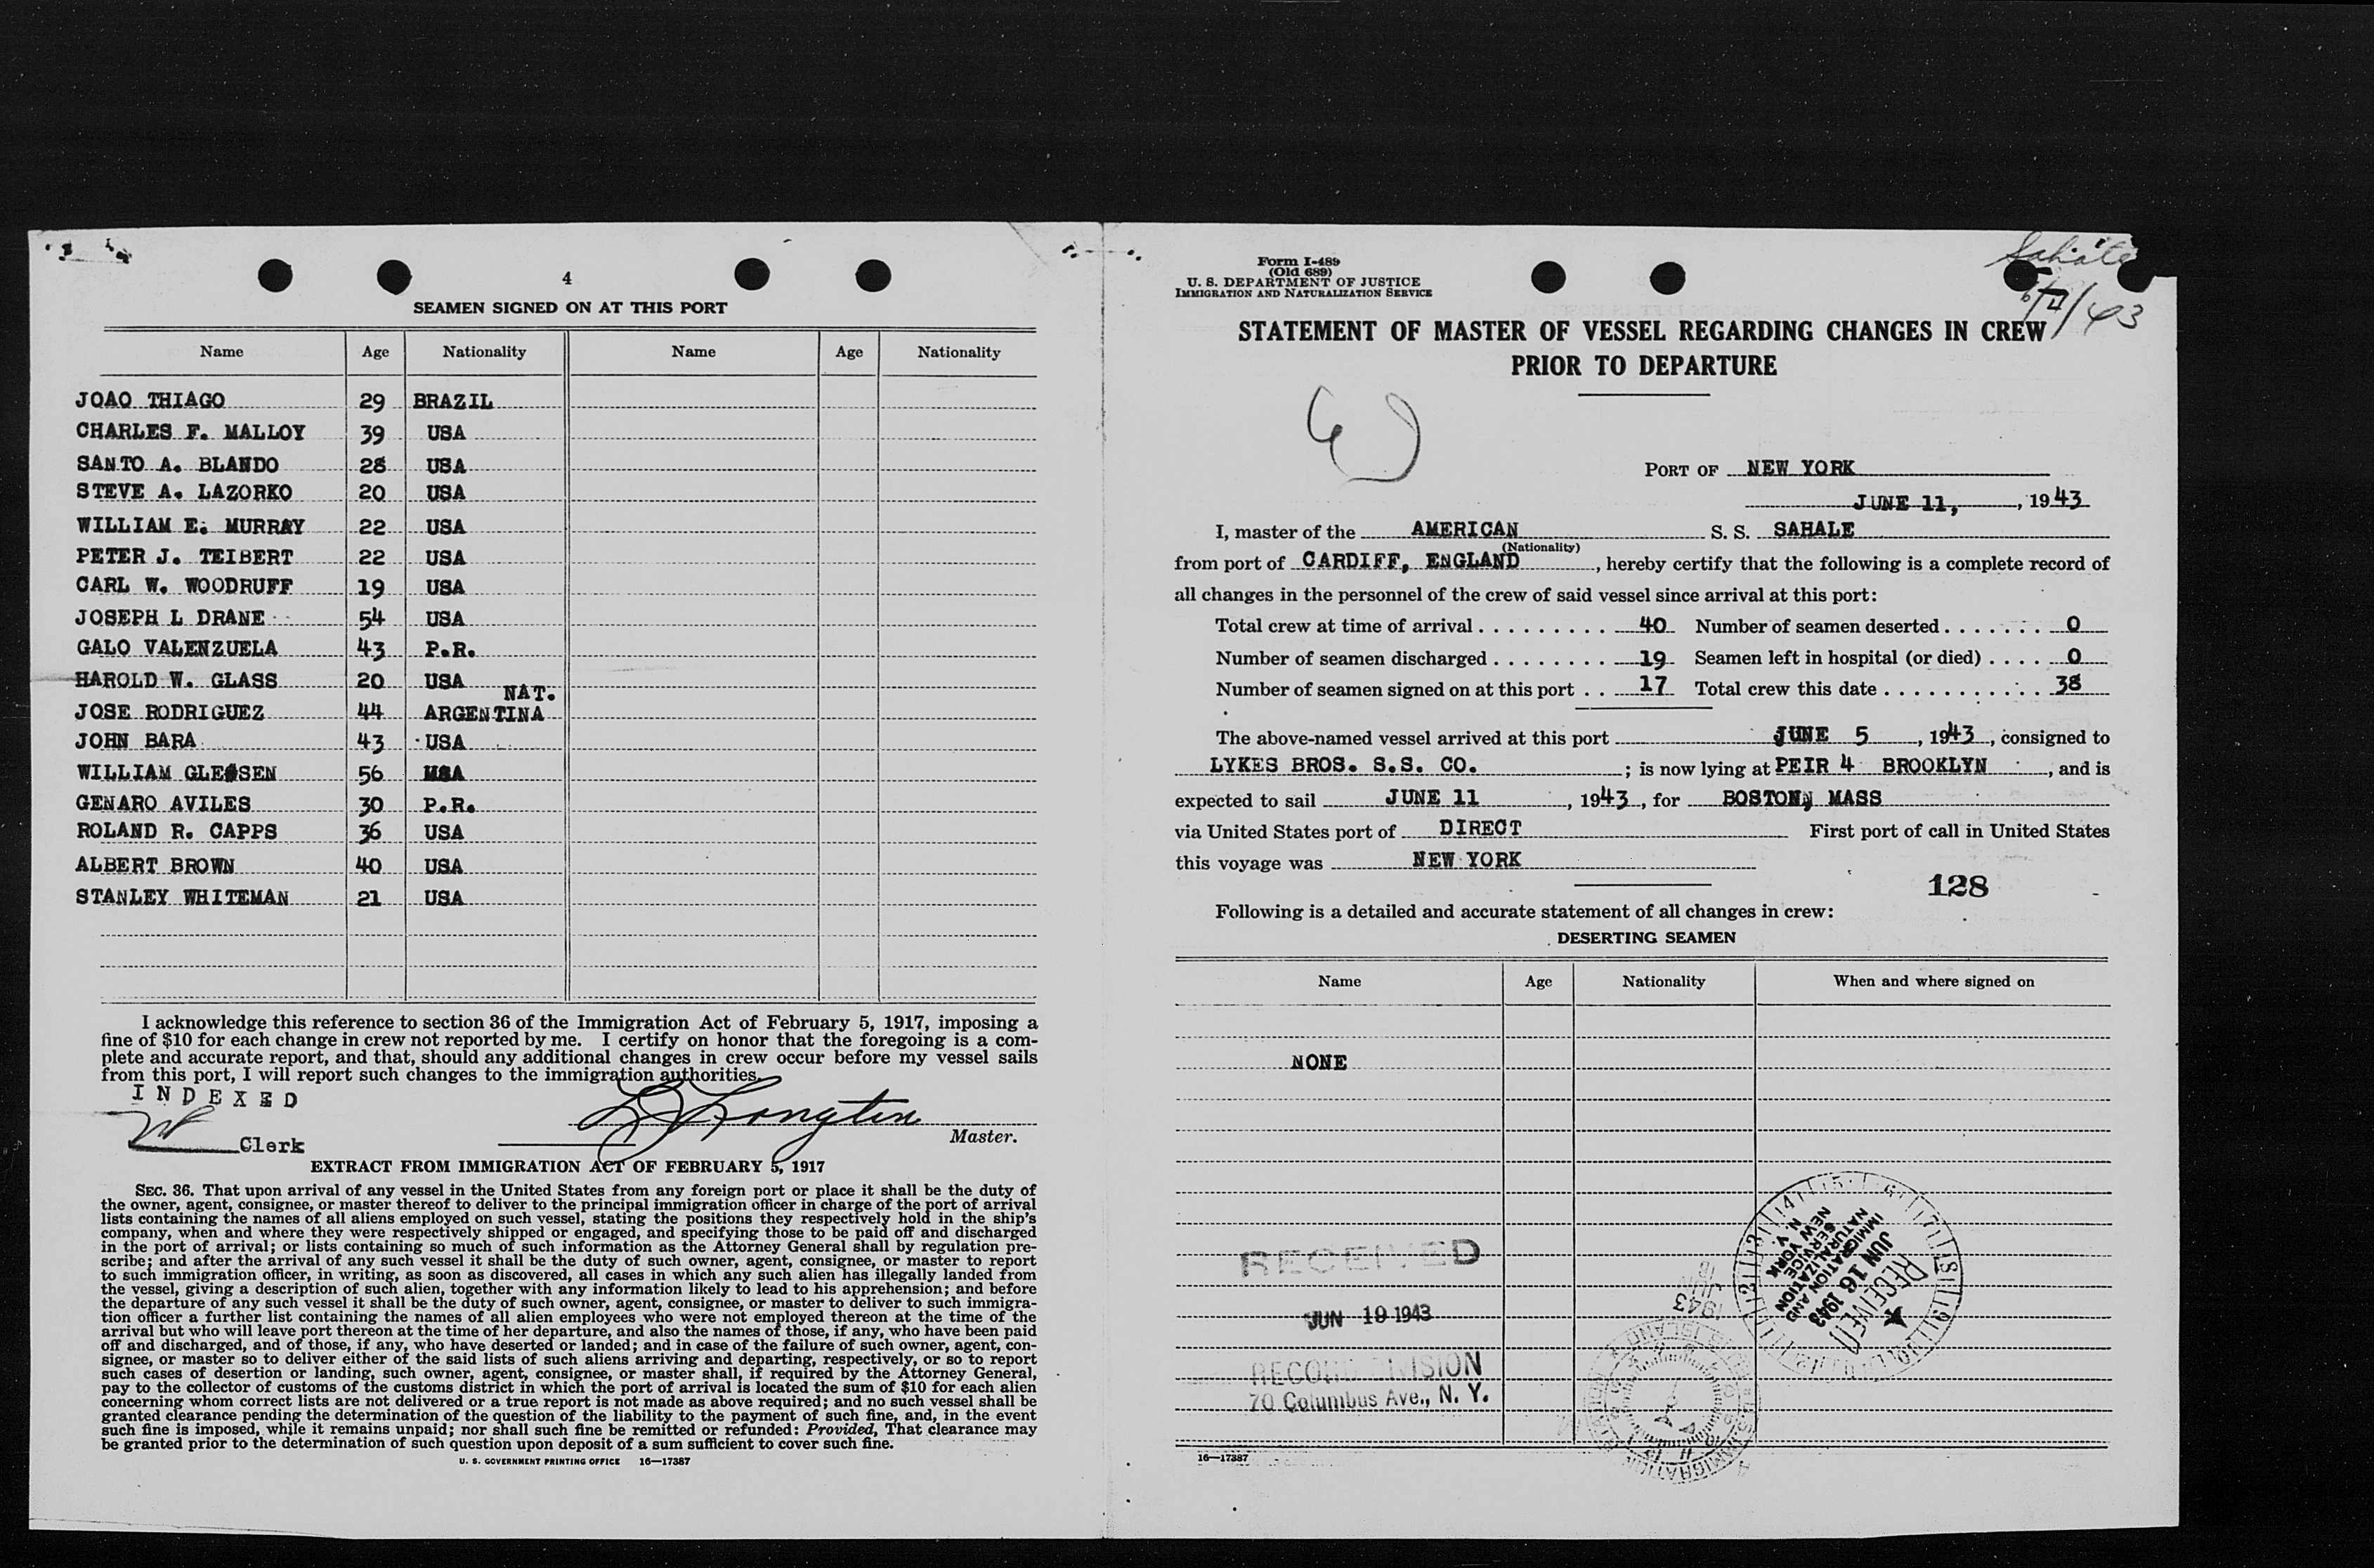 4
SEAMEN SIGNED ON AT THIS PORT
Name Age Nationality Name Age Nationality
JOAO THIAGO 29 BRAZIL
CHARLES F. MALLOY 39 USA
SANTO A. BLANDO 28 USA
STEVE A. LAZORKO 20 USA
WILLIAM E. MURRAY 22 USA
PETER J. TEIBERT 22 USA
CARL W. WOODRUFF 19 USA
JOSEPH L DRANE 54 USA
GALO VALENZUELA 43 P.R.
HAROLD W. GLASS 20 USA
NAT.
JOSE RODRIGUEZ 44 ARGENTINA
JOHN BARA 43 USA
WILLIAM GLEASEN 56 USA
GENARO AVILES 30 P.R.
ROLAND R. CAPPS 36 USA
ALBERT BROWN 40 USA
STANLEY WHITEMAN 21 USA
I acknowledge this reference to section 36 of the Immigration Act of February 5, 1917, imposing a
fine of $10 for each change in crew not reported by me. I certify on honor that the foregoing is a com-
plete and accurate report, and that, should any additional changes in crew occur before my vessel sails
from this port, I will report such changes to the immigration authorities.
INDEXED
Longtin
Master.
Clerk
EXTRACT FROM IMMIGRATION ACT OF FEBRUARY 5, 1917
SEC. 36. That upon arrival of any vessel in the United States from any foreign port or place it shall be the duty of
the owner, agent, consignee, or master thereof to deliver to the principal immigration officer in charge of the port of arrival
lists containing the names of all aliens employed on such vessel, stating the positions they respectively hold in the ship's
company, when and where they were respectively shipped or engaged, and specifying those to be paid off and discharged
in the port of arrival; or lists containing so much of such information as the Attorney General shall by regulation pre-
scribe; and after the arrival of any such vessel it shall be the duty of such owner, agent, consignee, or master to report
to such immigration officer, in writing, as soon as discovered, all cases in which any such alien has illegally landed from
the vessel, giving a description of such alien, together with any information likely to lead to his apprehension; and before
the departure of any such vessel it shall be the duty of such owner, agent, consignee, or master to deliver to such immigra-
tion officer a further list containing the names of all alien employees who were not employed thereon at the time of the
arrival but who will leave port thereon at the time of her departure, and also the names of those, if any, who have been paid
off and discharged, and of those, if any, who have deserted or landed; and in case of the failure of such owner, agent, con-
signee, or master so to deliver either of the said lists of such aliens arriving and departing, respectively, or so to report
such cases of desertion or landing, such owner, agent, consignee, or master shall, if required by the Attorney General,
pay to the collector of customs of the customs district in which the port of arrival is located the sum of $10 for each alien
concerning whom correct lists are not delivered or a true report is not made as above required; and no such vessel shall be
granted clearance pending the determination of the question of the liability to the payment of such fine, and, in the event
such fine is imposed, while it remains unpaid; nor shall such fine be remitted or refunded: Provided, That clearance may
be granted prior to the determination of such question upon deposit of a sum sufficient to cover such fine.
U. S. GOVERNMENT PRINTING OFFICE 16—17387
Form I-489
(Old 689)
U. S. DEPARTMENT OF JUSTICE
IMMIGRATION AND NATURALIZATION SERVICE
Sahale
6/11/43
STATEMENT OF MASTER OF VESSEL REGARDING CHANGES IN CREW
PRIOR TO DEPARTURE
PORT OF NEW YORK
JUNE 11, , 1943
I, master of the AMERICAN S. S. SAHALE
(Nationality)
from port of CARDIFF, ENGLAND , hereby certify that the following is a complete record of
all changes in the personnel of the crew of said vessel since arrival at this port:
Total crew at time of arrival . . . . . . . . . . 40 Number of seamen deserted . . . . . . . 0
Number of seamen discharged . . . . . . . . 19 Seamen left in hospital (or died) . . . . 0
Number of seamen signed on at this port . . 17 Total crew this date . . . . . . . . . . . . 38
The above-named vessel arrived at this port JUNE 5 , 1943 , consigned to
LYKES BROS. S.S. CO. ; is now lying at PEIR 4 BROOKLYN , and is
expected to sail JUNE 11 , 1943 , for BOSTON, MASS
via United States port of DIRECT First port of call in United States
this voyage was NEW YORK
128
Following is a detailed and accurate statement of all changes in crew:
DESERTING SEAMEN
Name Age Nationality When and where signed on
NONE
RECEIVED
JUN 19 1943
RECORD DIVISION
70 Columbus Ave., N. Y.
JUN
1943
RECEIVED
JUN 16 1943
IMMIGRATION AND
NATURALIZATION
SERVICE
NEW YORK
N. Y.
16—17387